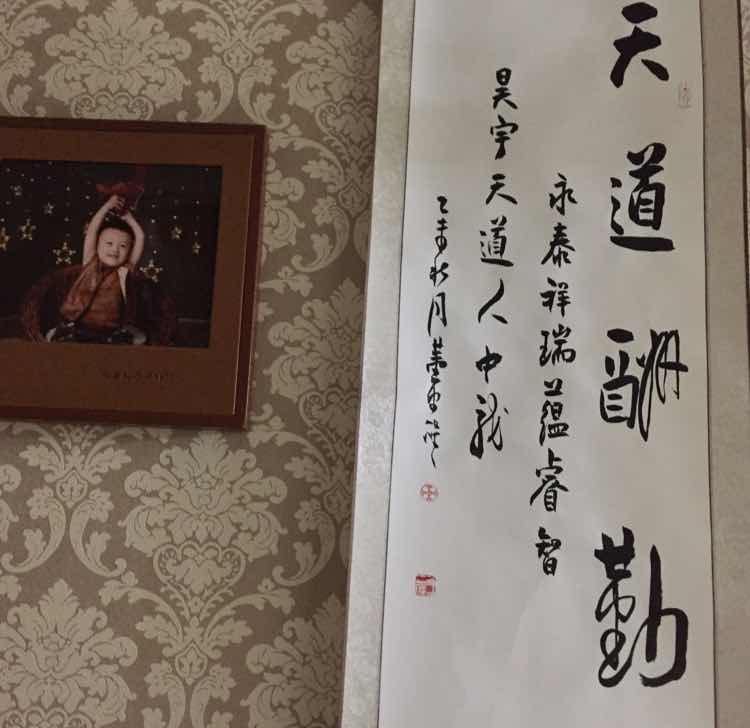 天道酬勤
永泰祥瑞蕴睿智
昊宇天道人中龙
乙未秋月